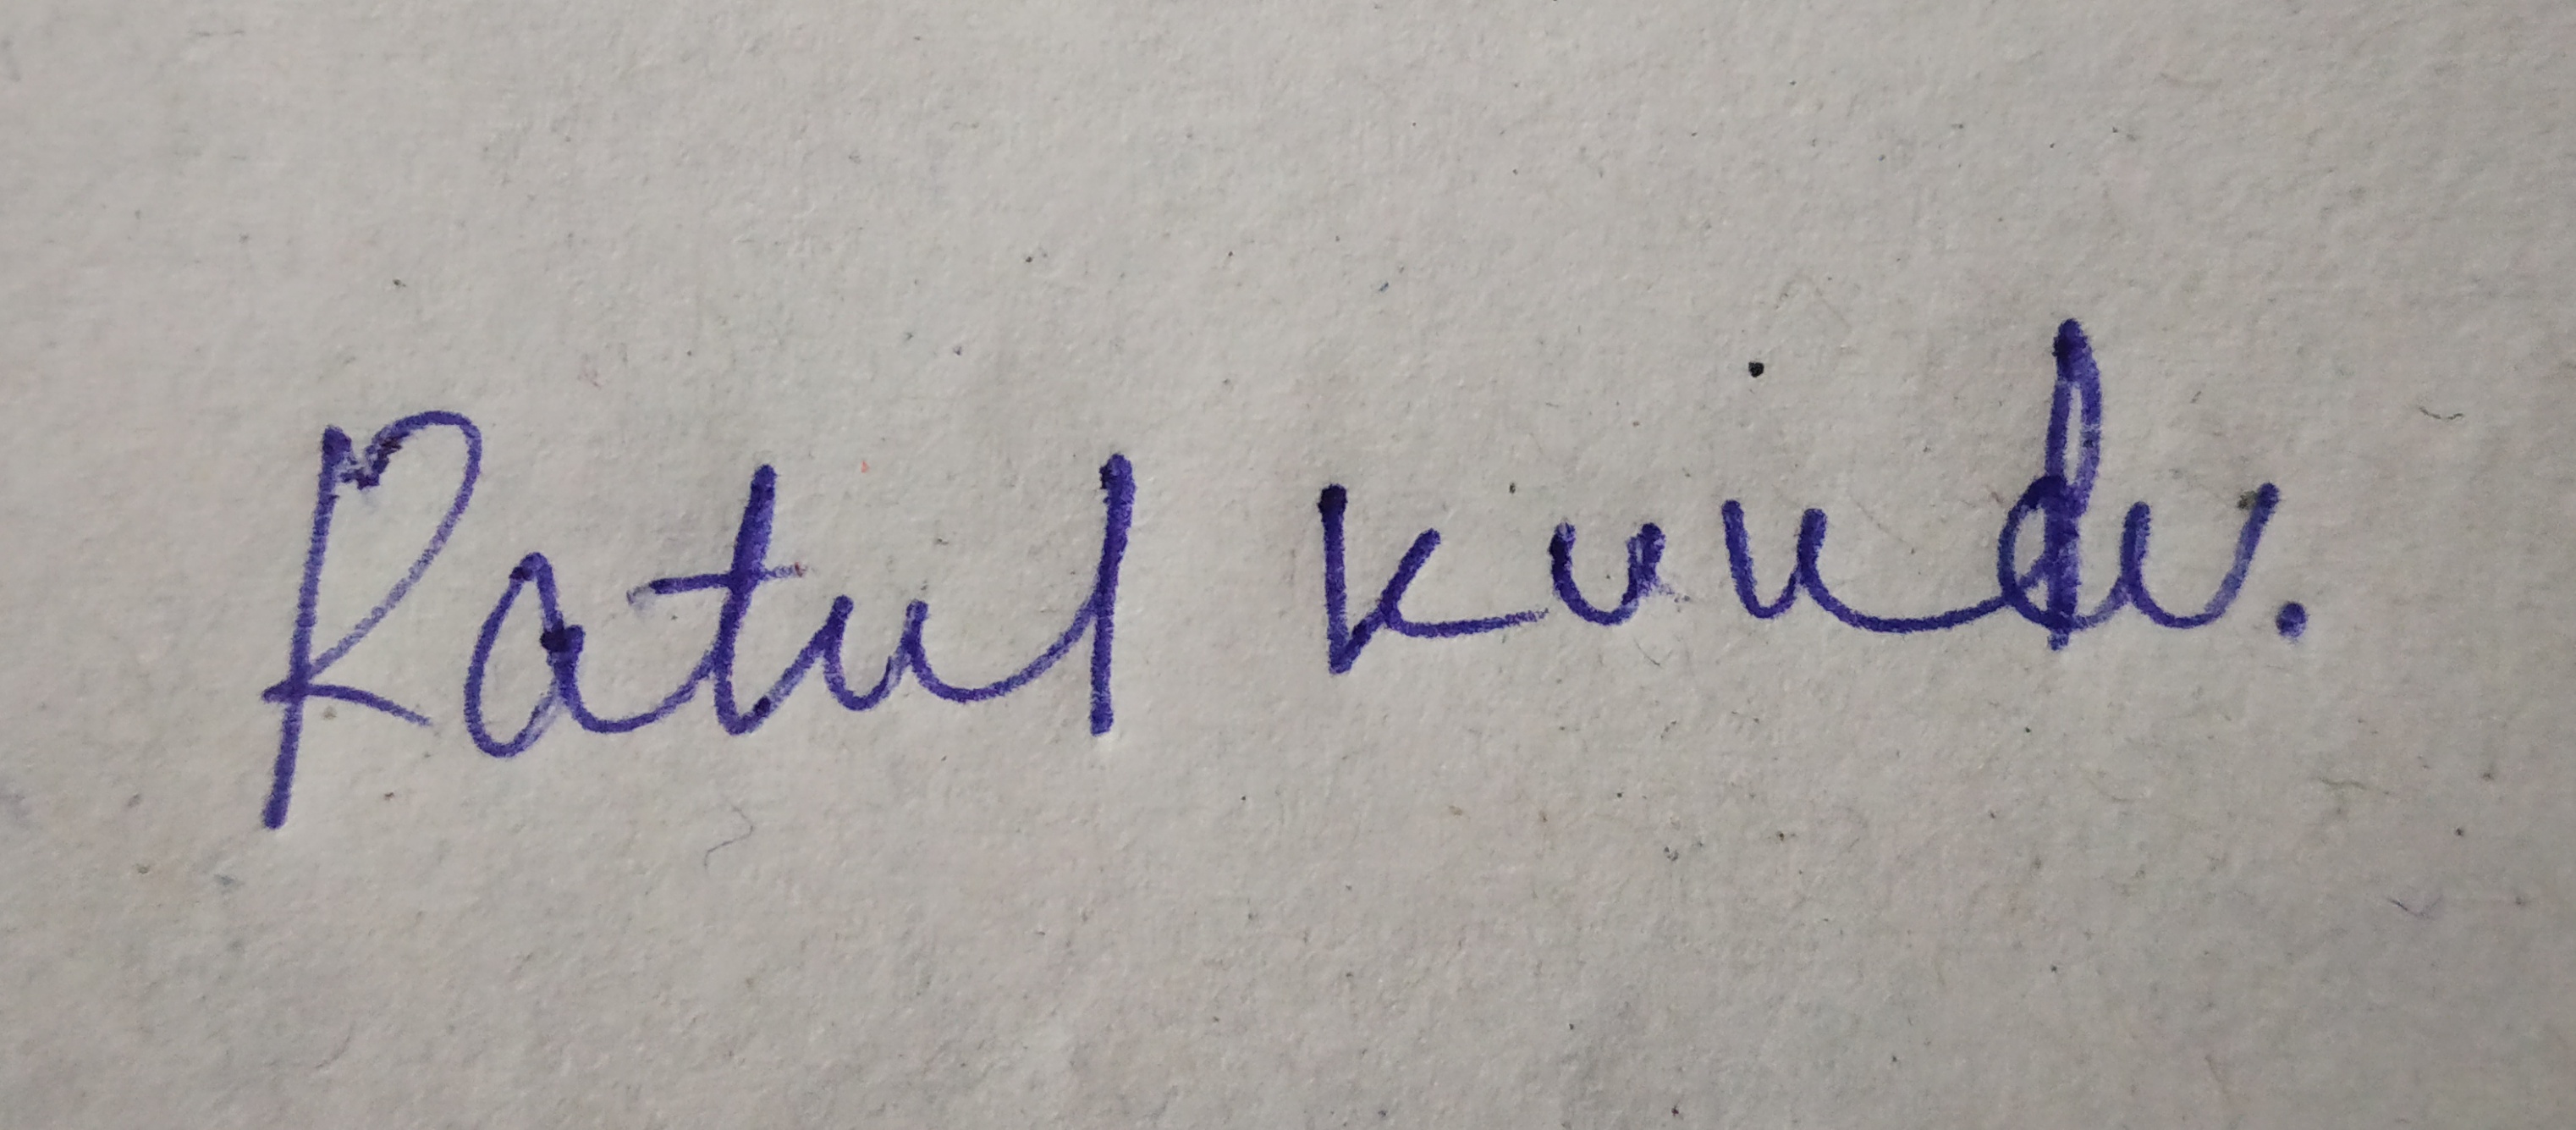 Ratul kundu.